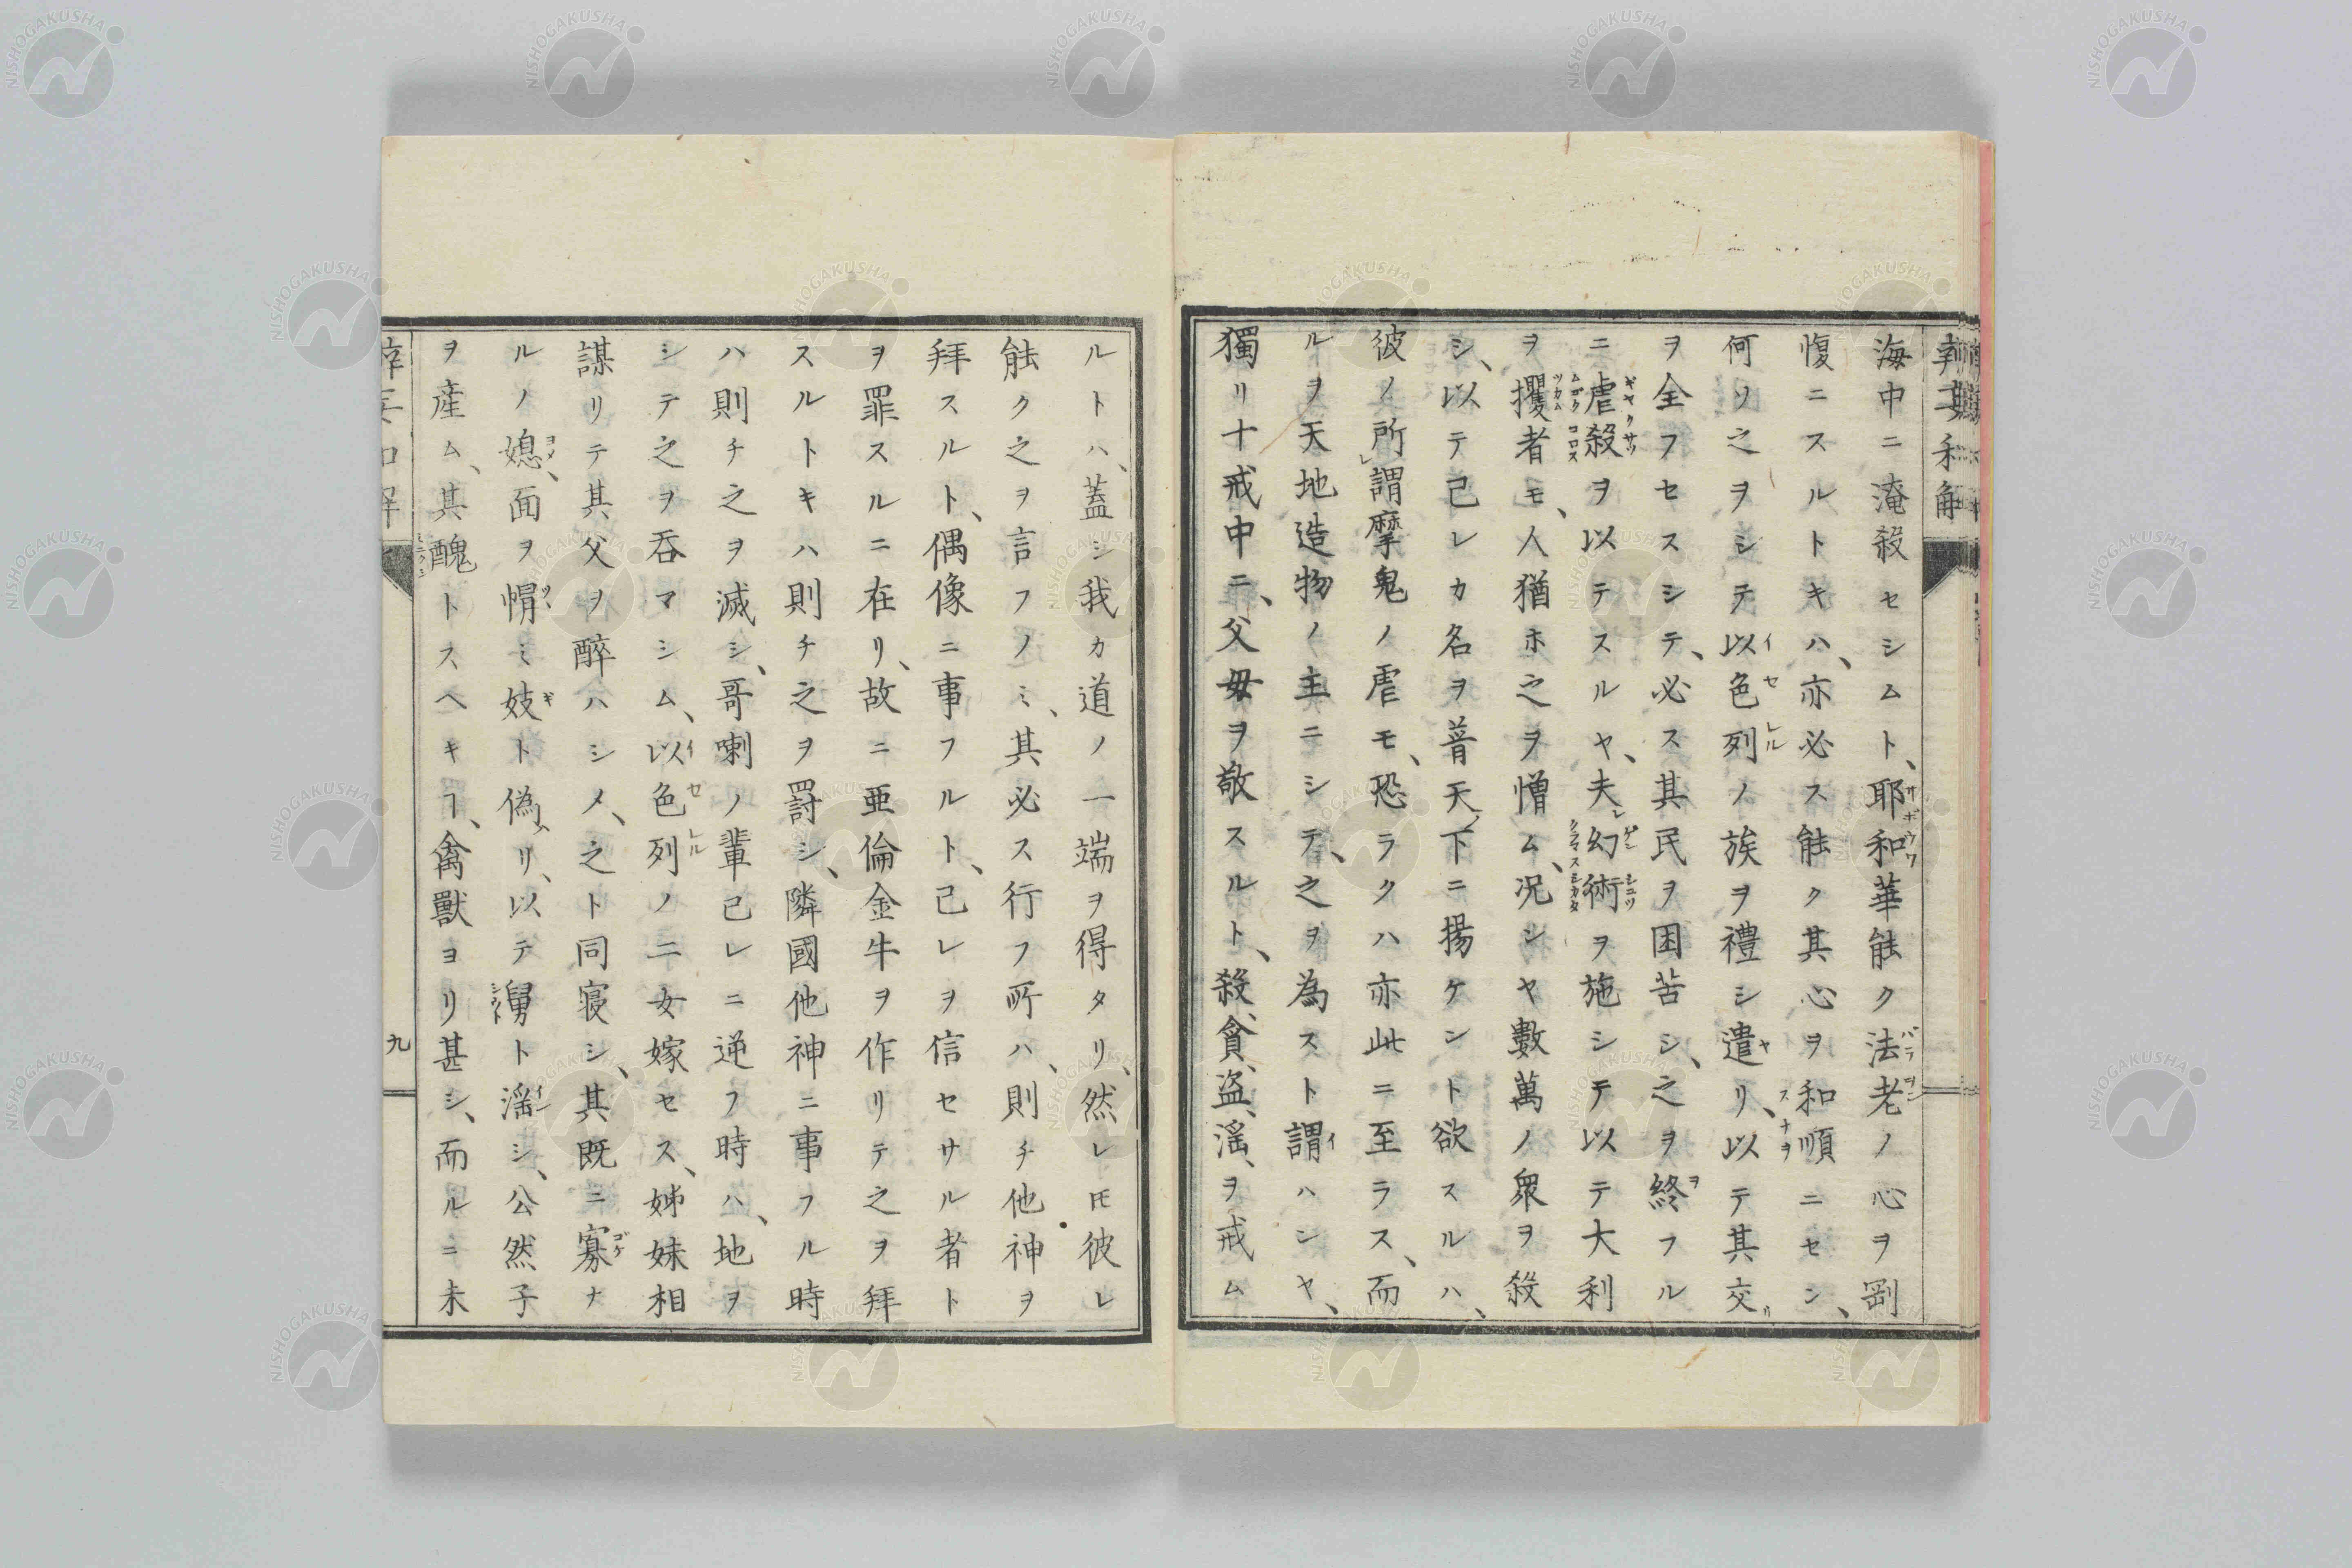 海中ニ淹殺セシムト、耶和華能ク法老ノ心ヲ剛
愎ニスルトキハ、亦必ス能ク其心ヲ和順ニセシ、
何ソ之ヲシテ以色列ノ族ヲ禮シ遣リ、以テ其交
ヲ全フセスシテ、必ス其民ヲ困苦シ、之ヲ終フル
ニ虐殺ヲ以テスルヤ、夫レ幻術ヲ施シテ以テ大利
ヲ攫者モ、人猶ホ之ヲ憎ム、况シヤ數萬ノ衆ヲ殺
シ、以テ己レカ名ヲ普天下ニ揚ケント欲スルハ、
彼ノ所謂摩鬼ノ虐モ、恐ラクハ亦此ニ至ラス、而
ルヲ天地造物ノ主ニシテ、之ヲ為スト謂ハンヤ、
獨リ十戒中ニ、父毋ヲ敬スルト、殺、貪、盗、滛、ヲ戒ム
ルトハ、蓋シ我カ道ノ一端ヲ得タリ、然レ𪜈彼レ
能ク之ヲ言フノミ、其必ス行フ所ハ、則チ他神ヲ
拜スルト、偶像ニ事フルト、己レヲ信セサル者ト
ヲ罪スルニ在リ、故ニ亜倫金牛ヲ作リテ之ヲ拜
スルトキハ則チ之ヲ罰シ、隣國他神ニ事フル時
ハ則チ之ヲ滅シ、哥喇ノ輩己レニ逆フ時ハ、地ヲ
シテ之ヲ吞マシム、以色列ノ二女嫁セス、姊妹相
謀リテ其父ヲ醉ハシメ、之ト同寝シ、其既ニ寡ナ
ルノ媳、面ヲ㡌ミ妓ト偽リ、以テ舅ト滛シ、公然子
ヲ産ム、其醜トスヘキヿ、禽獸ヨリ甚シ、而ルニ未
九